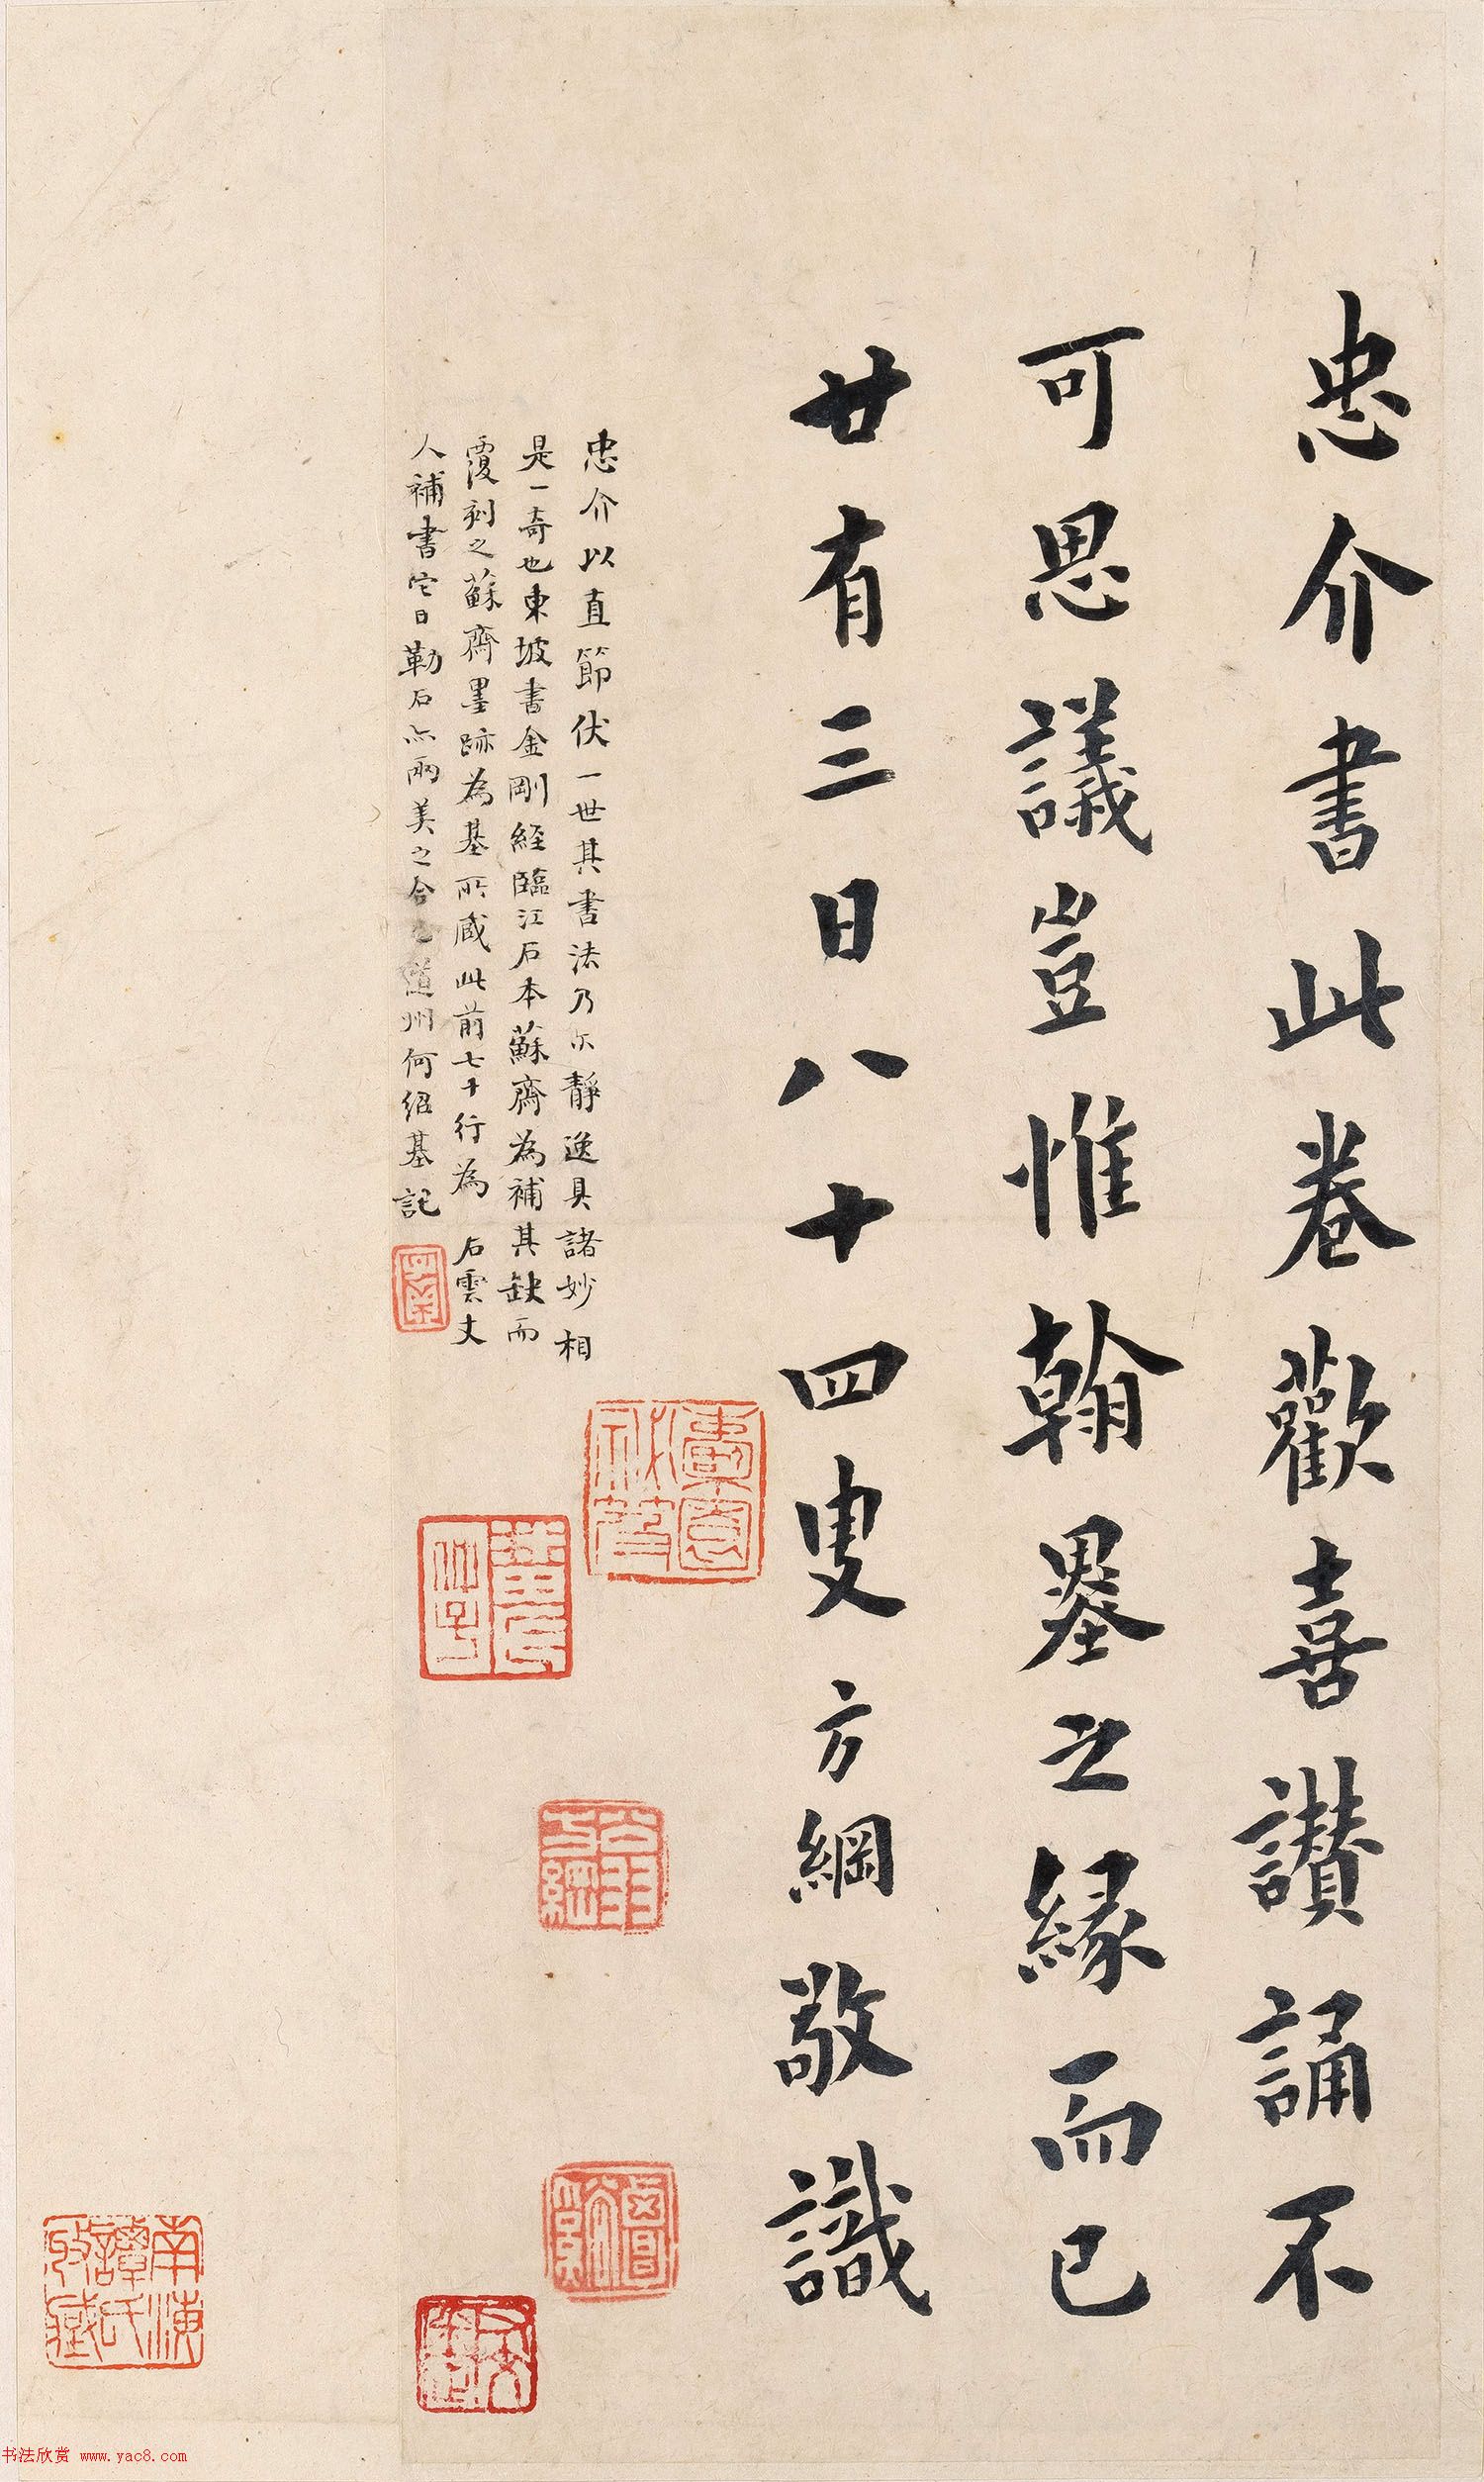 忠介書此卷歡喜讚誦不
可思議豈惟翰墨之緣而已
廿有三日八十四叟方綱敬識
忠介以直節伏一世其書法乃尔靜逸具諸妙相
是一奇也東坡書金剛經臨江石本蘇齋為補其缺而
覆刻之蘇齋墨跡為基所藏此前七十行為石雲丈
人補書它日勒石亦兩美之合也道州何紹基記
南海
譚氏
收藏
书法欣赏 www.yac8.com